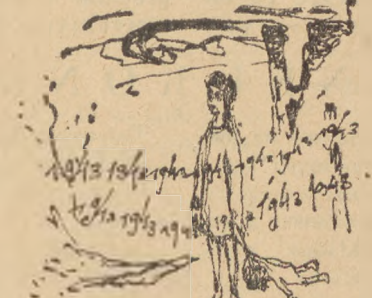 1943 1943 1943 1943 1943 1943 1943
1943 1943 194 19 1943 1943